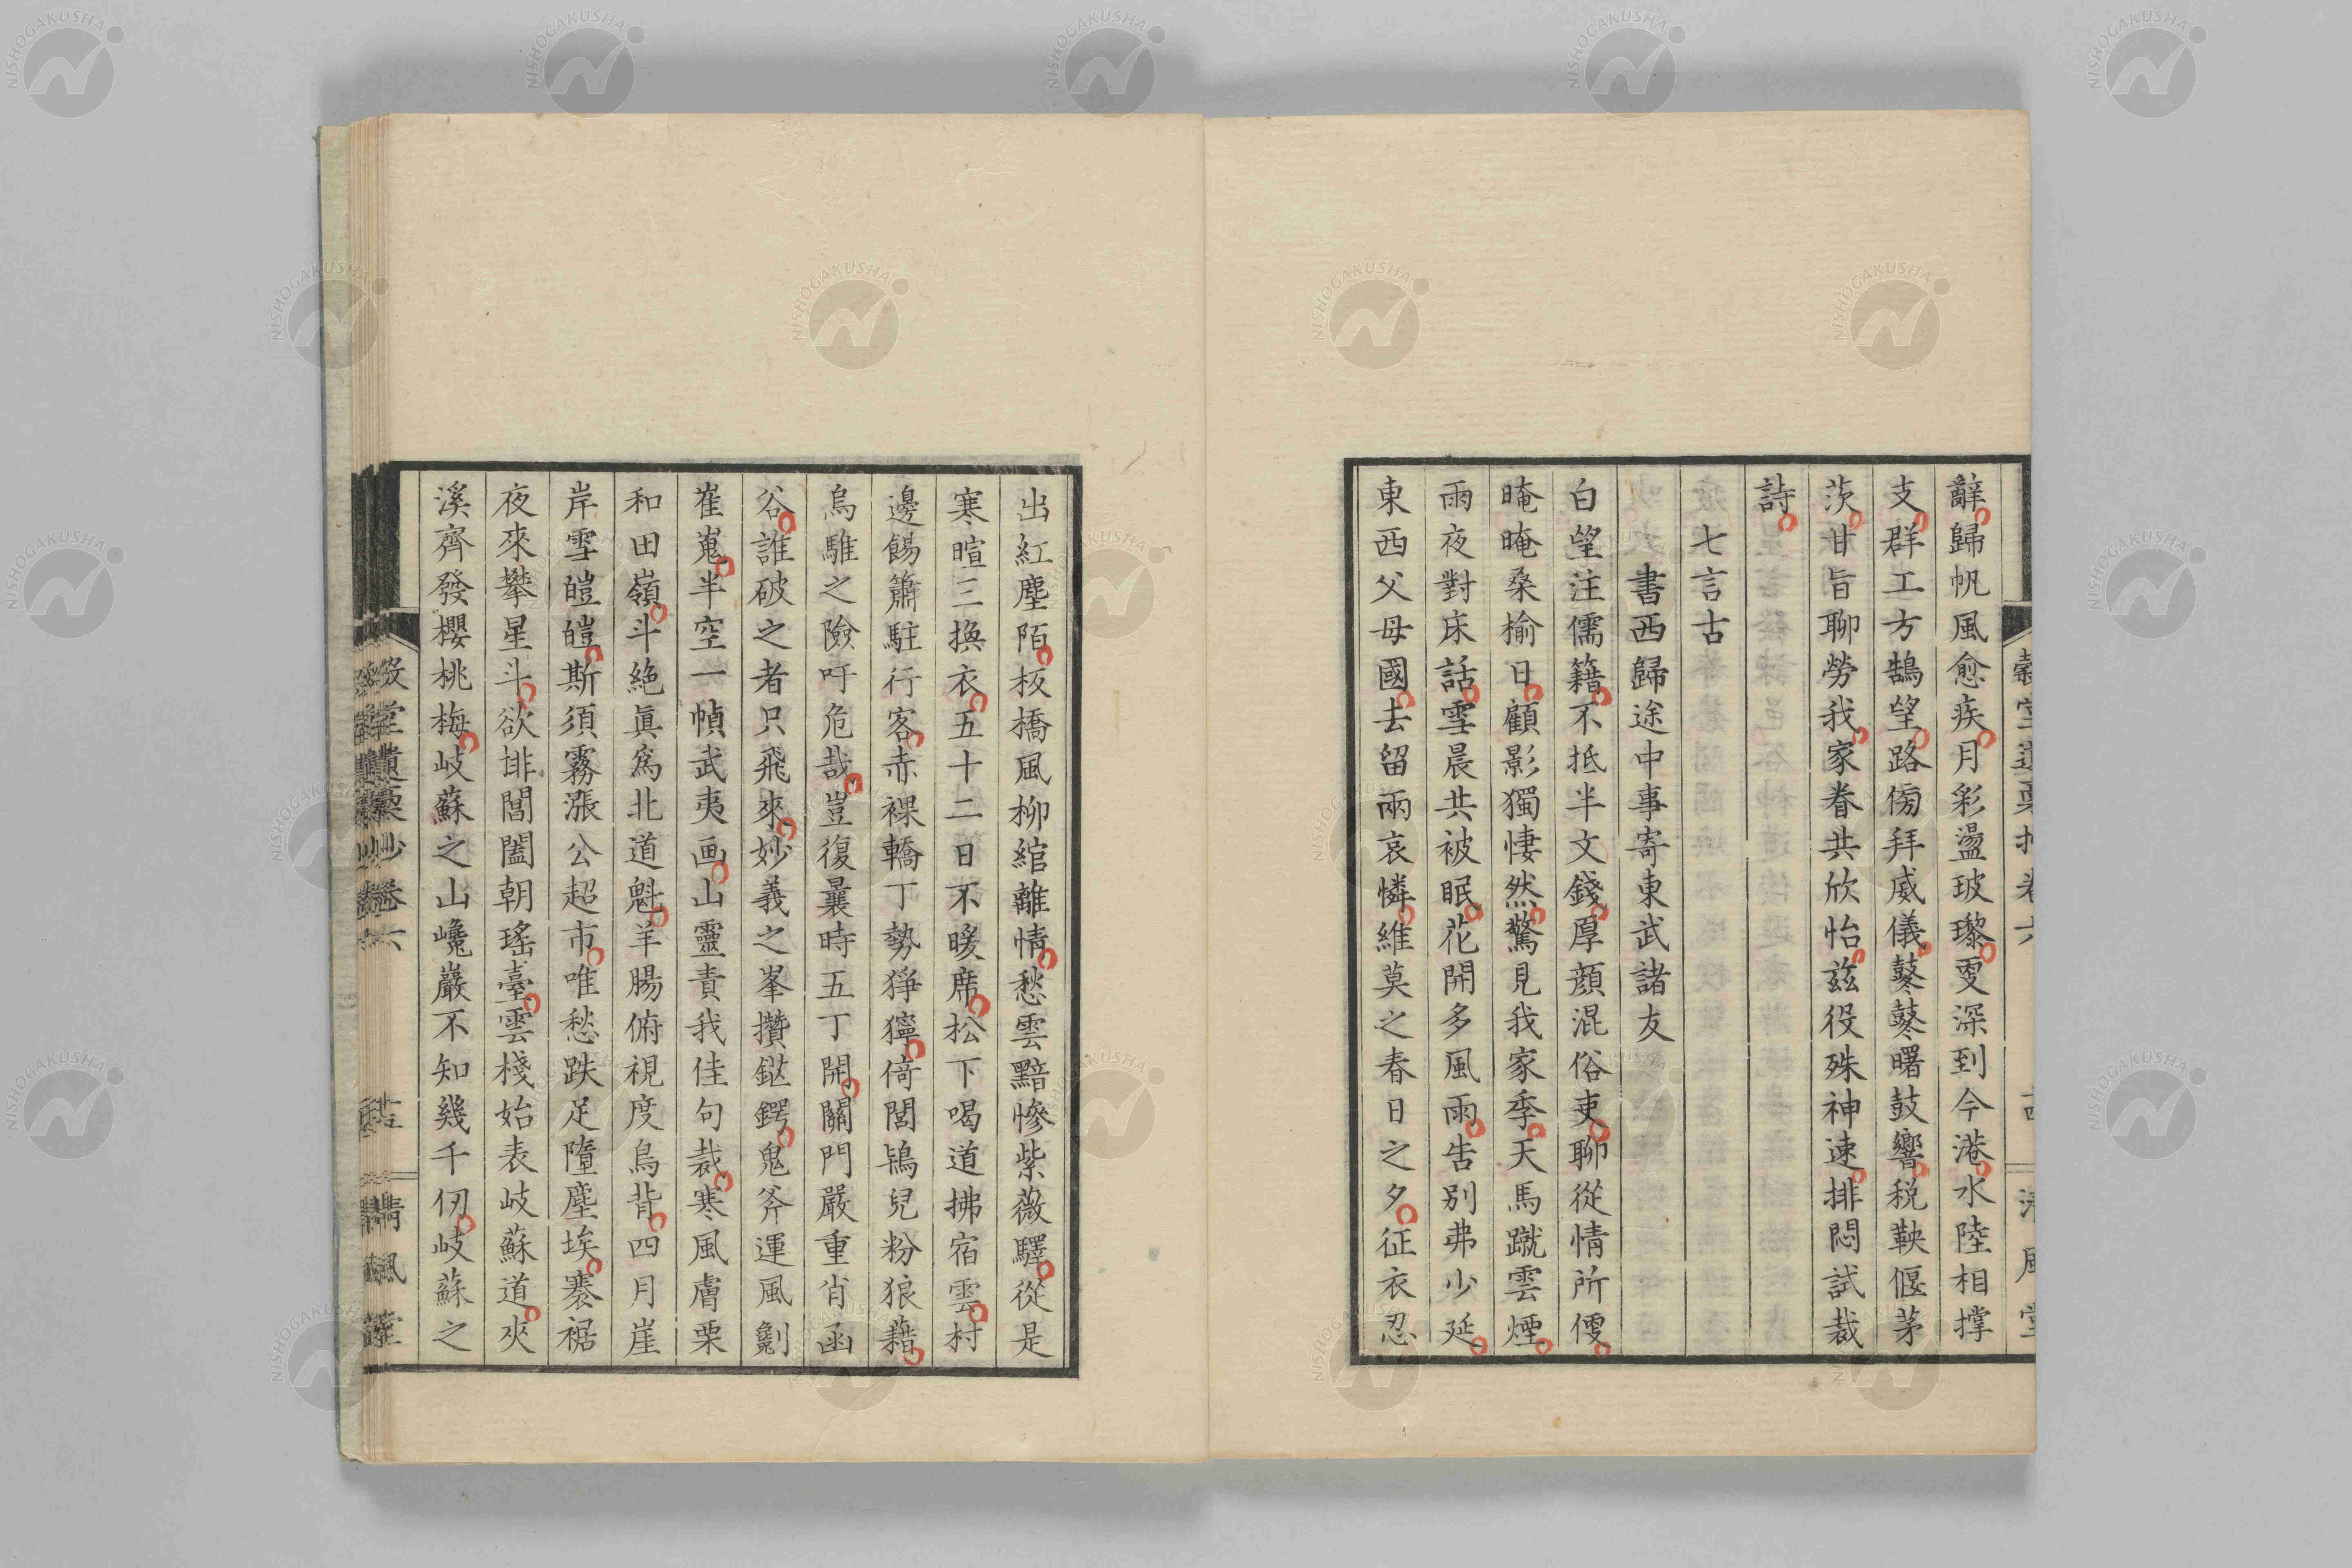 辭歸帆風愈疾月彩盪玻瓈雯深到今港水陸相撑
支群工方鵠望路傍拜威儀鼕鼕曙鼓響税鞅偃茅
茨甘旨聊勞我家眷共欣怡茲役殊神速排悶試裁
詩
七言古
書西歸途中事寄東武諸友
白望注儒籍不抵半文錢厚顔混俗吏聊從情所便
晻晻桑榆日顧影獨悽然驚見我家季天馬蹴雲煙
雨夜對床話雪晨共被眠花開多風雨告別弗少延
東西父母國去留兩哀憐維莫之春日之夕征衣忍
出紅塵陌板橋風柳綰離情愁雲黯慘紫薇驛從是
寒暄三換衣五十二日不暖席松下喝道拂宿雲村
邊餳簫駐行客赤裸轎丁勢猙獰倚閭鴇兒粉狼藉
烏騅之險吁危哉豈復曩時五丁開關門嚴重肖函
谷誰破之者只飛來妙義之峯攢鎹鍔鬼斧運風劖
崔嵬半空一幀武夷画山靈責我佳句裁寒風膚栗
和田嶺斗絶眞爲北道魁羊腸俯視度烏背四月崖
岸雪皚皚斯須霧漲公超市唯愁跌足墮塵埃褰裾
夜來攀星斗欲排閶闔朝瑤臺雲棧始表岐蘇道夾
溪齊發櫻桃梅岐蘇之山巉巖不知幾千仞岐蘇之
清風堂